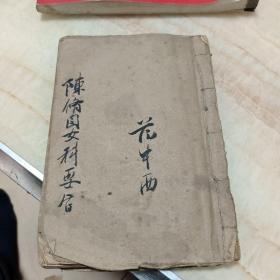 陳修園女科要旨
范中西